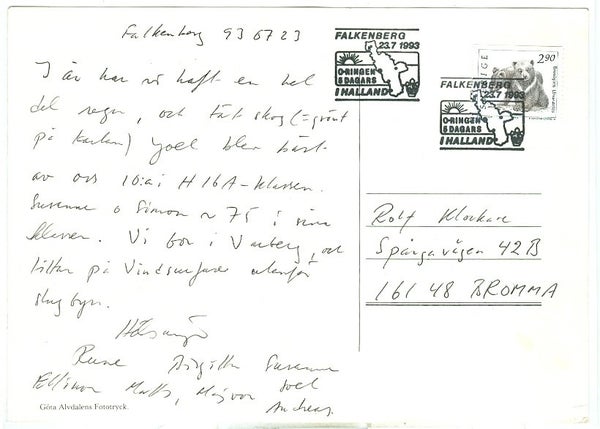 Falkenberg 93 07 23
I år har vi haft en hel
del regn, och tät skog (=grönt
på kartan) Joel blev bäst
av oss 10:a i H16A-klassen.
Susanne o Simon ~ 75 i sina
klasser. Vi bor i Varberg, och
tittar på vindsurfare utanför
stugbyn.
Hälsningar
Rune Birgitta Susanne
Ellinor Matts, Majvor Joel
Andreas
Göra Alvdalens Fototryck.
FALKENBERG
23.7 1993
O-RINGEN
5 DAGARS
I HALLAND
SVERIGE
2.90
FALKENBERG
23.7 1993
O-RINGEN
5 DAGARS
I HALLAND
Rolf Klockare
Spångavägen 42B
161 48 BROMMA